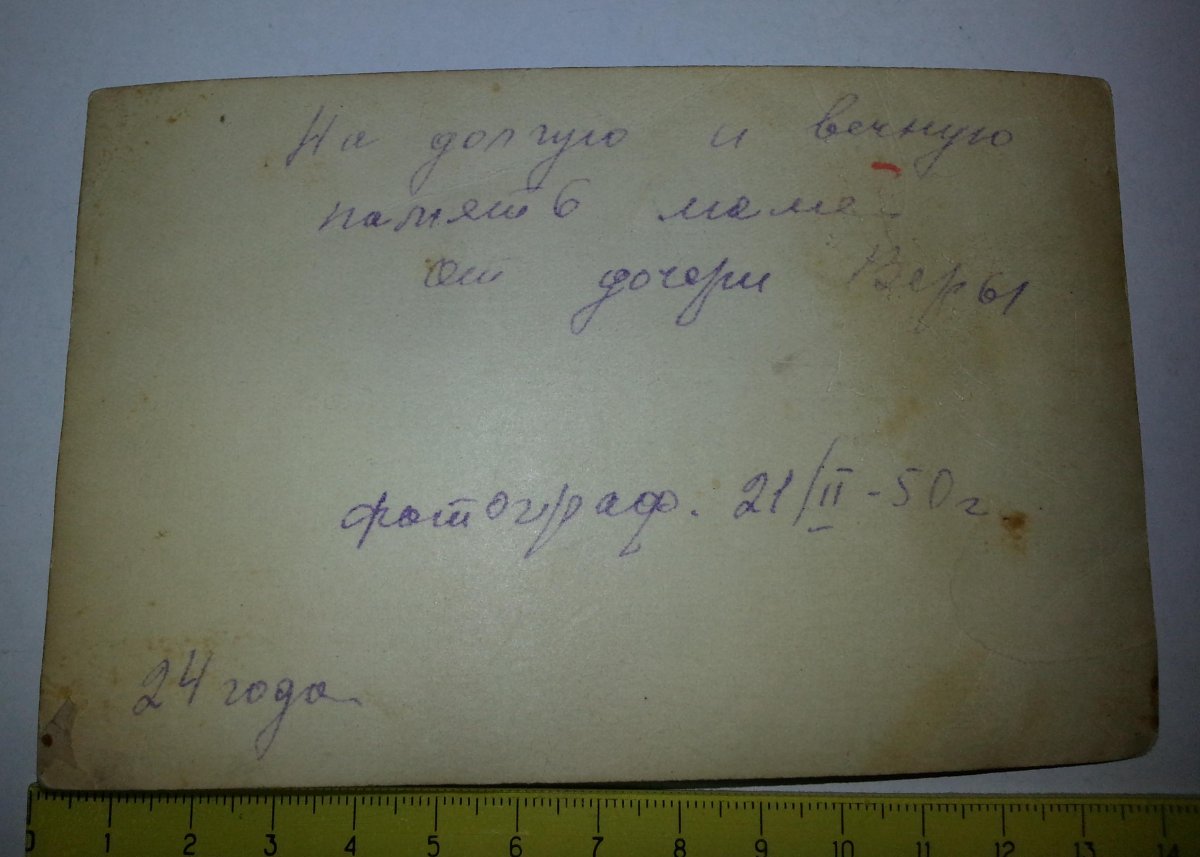 На долгую и вечную
память маме
от дочери Веры
фотограф. 21/II - 50 г.
24 года
0 1 2 3 4 5 6 7 8 9 10 11 12 13 14